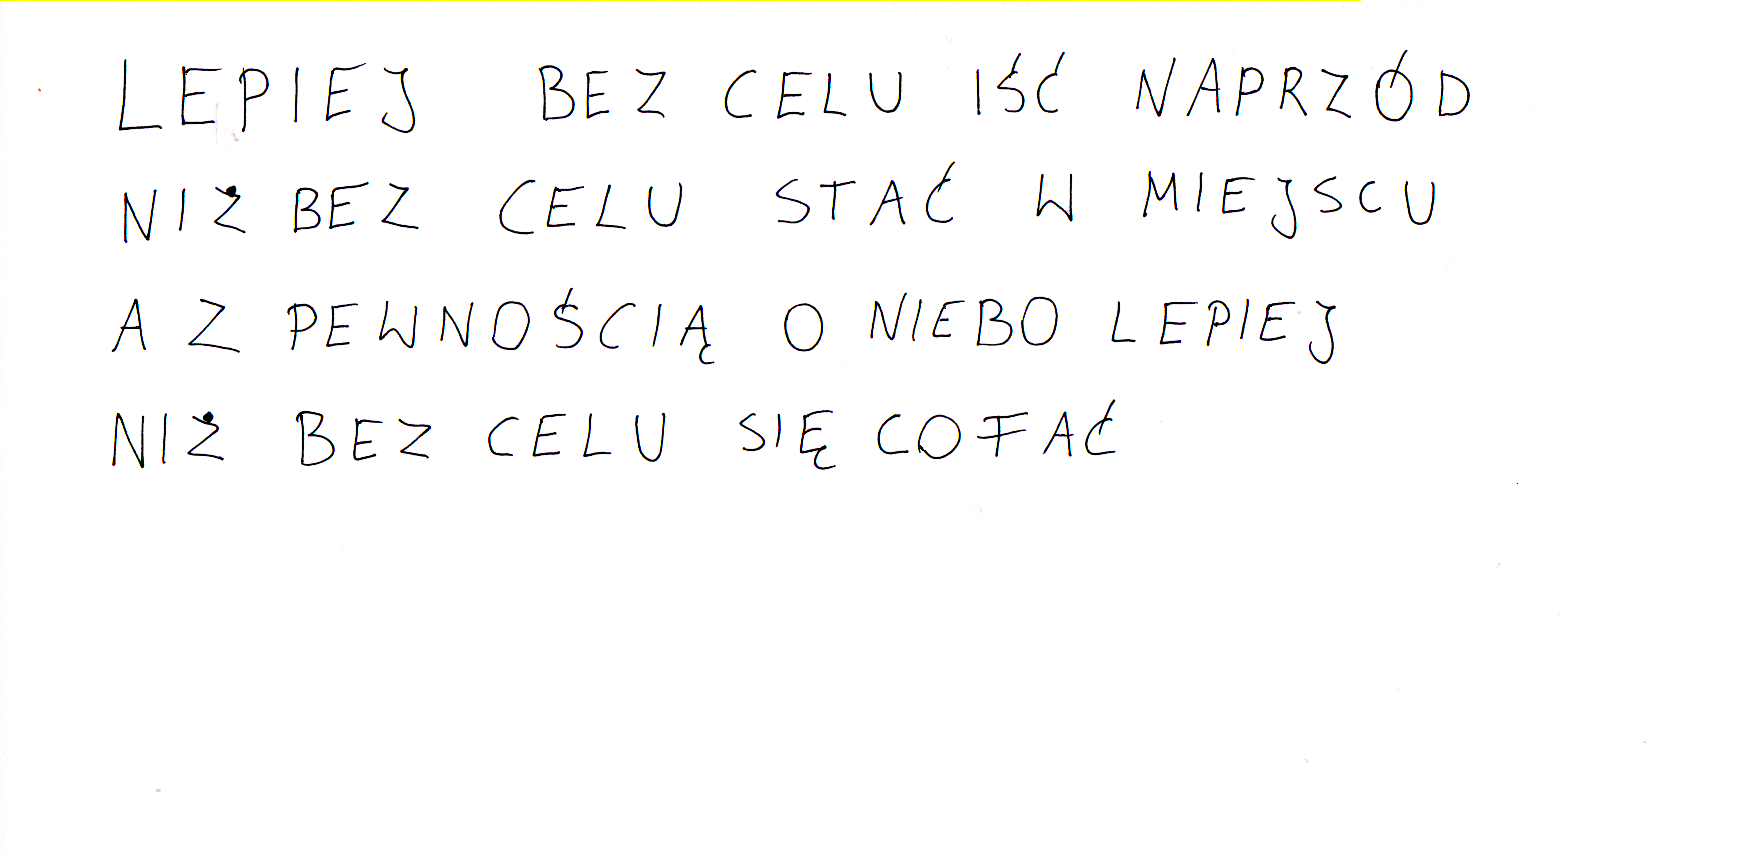 LEPIEJ BEZ CELU IŚĆ NAPRZÓD
NIŻ BEZ CELU STAĆ W MIEJSCU
A Z PEWNOŚCIĄ O NIEBO LEPIEJ
NIŻ BEZ CELU SIĘ COFAĆ